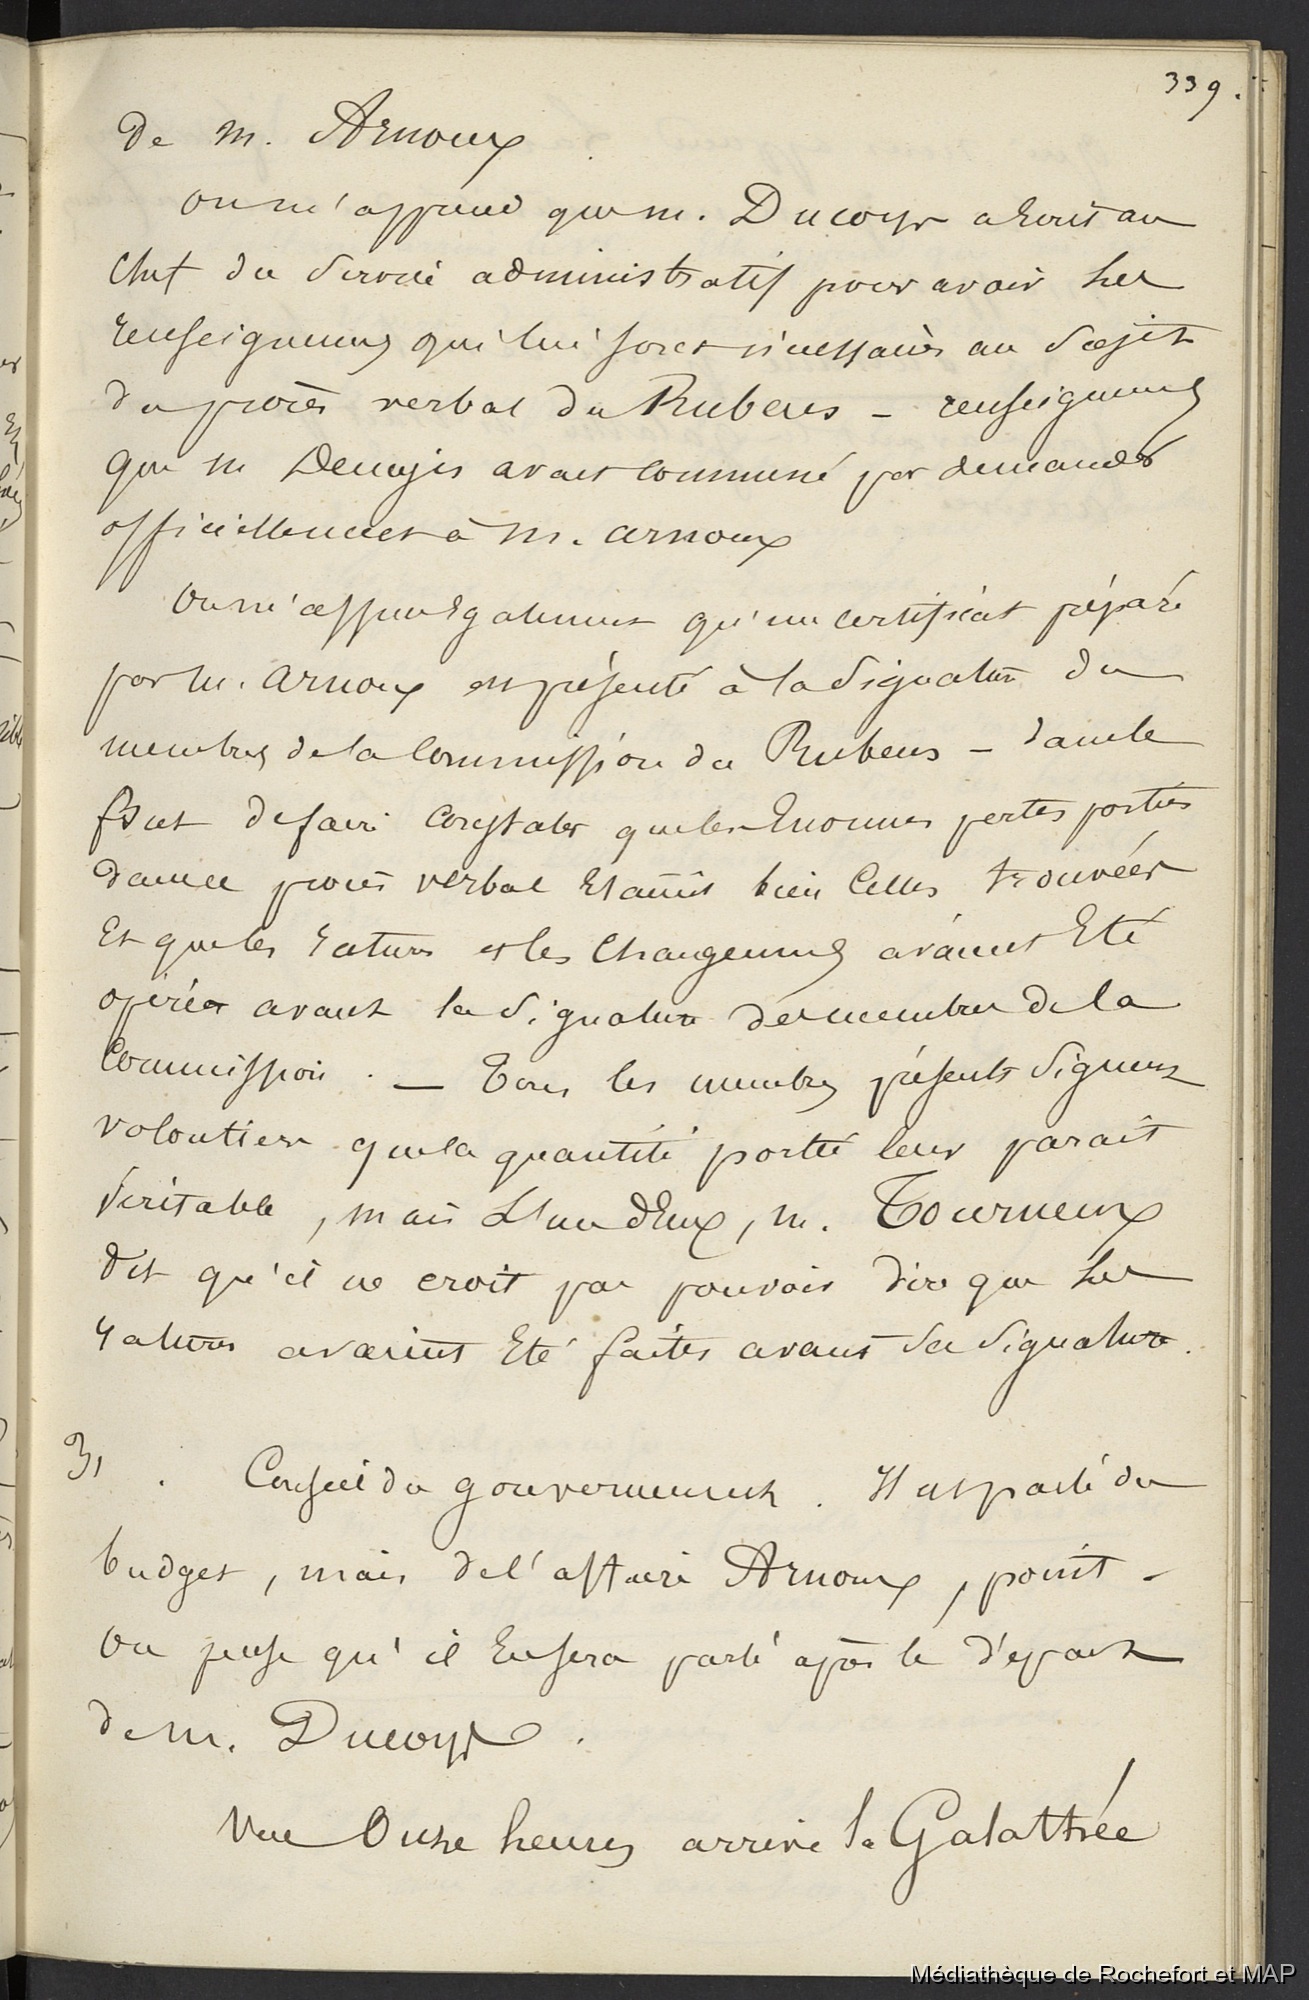 339.
de M. Arnoux
on m'apprend que M. Ducoyr a Ecrit au
Chef du Service administratif pour avoir les
renseignemens qui lui sont nécessaires au Sujet
du procès verbal du Rubens - renseignemens
que M Denayis avait commencé par demander
officiellement à M. arnoux
On m'apprend Egalement qu'un certificat préparé
par M. arnoux est présenté à la Signature des
membres de la Commission du Rubens - dans le
But de faire Constater que les Enormes pertes portées
dans ce procès verbal Etaient bien Celles trouvées
Et que les ratures et les Changemens avaient Eté
opérées avant la Signature des membres de la
Commission. - Tous les membres présents Signent
volontiers que la quantité portée leur parait
Véritable, mais L'un d'Eux, M. Tourneux
dit qu'il ne croit pas pouvoir dire que les
ratures avaient Eté faites avant sa Signature.
31. Conseil du gouvernement. Il est parlé du
budget, mais de l'affaire Arnoux, point -
On pense qu'il En sera parlé après le départ
de M. Ducoyr.
Vers Onze heures arrive la Galathée
Médiathèque de Rochefort et MAP